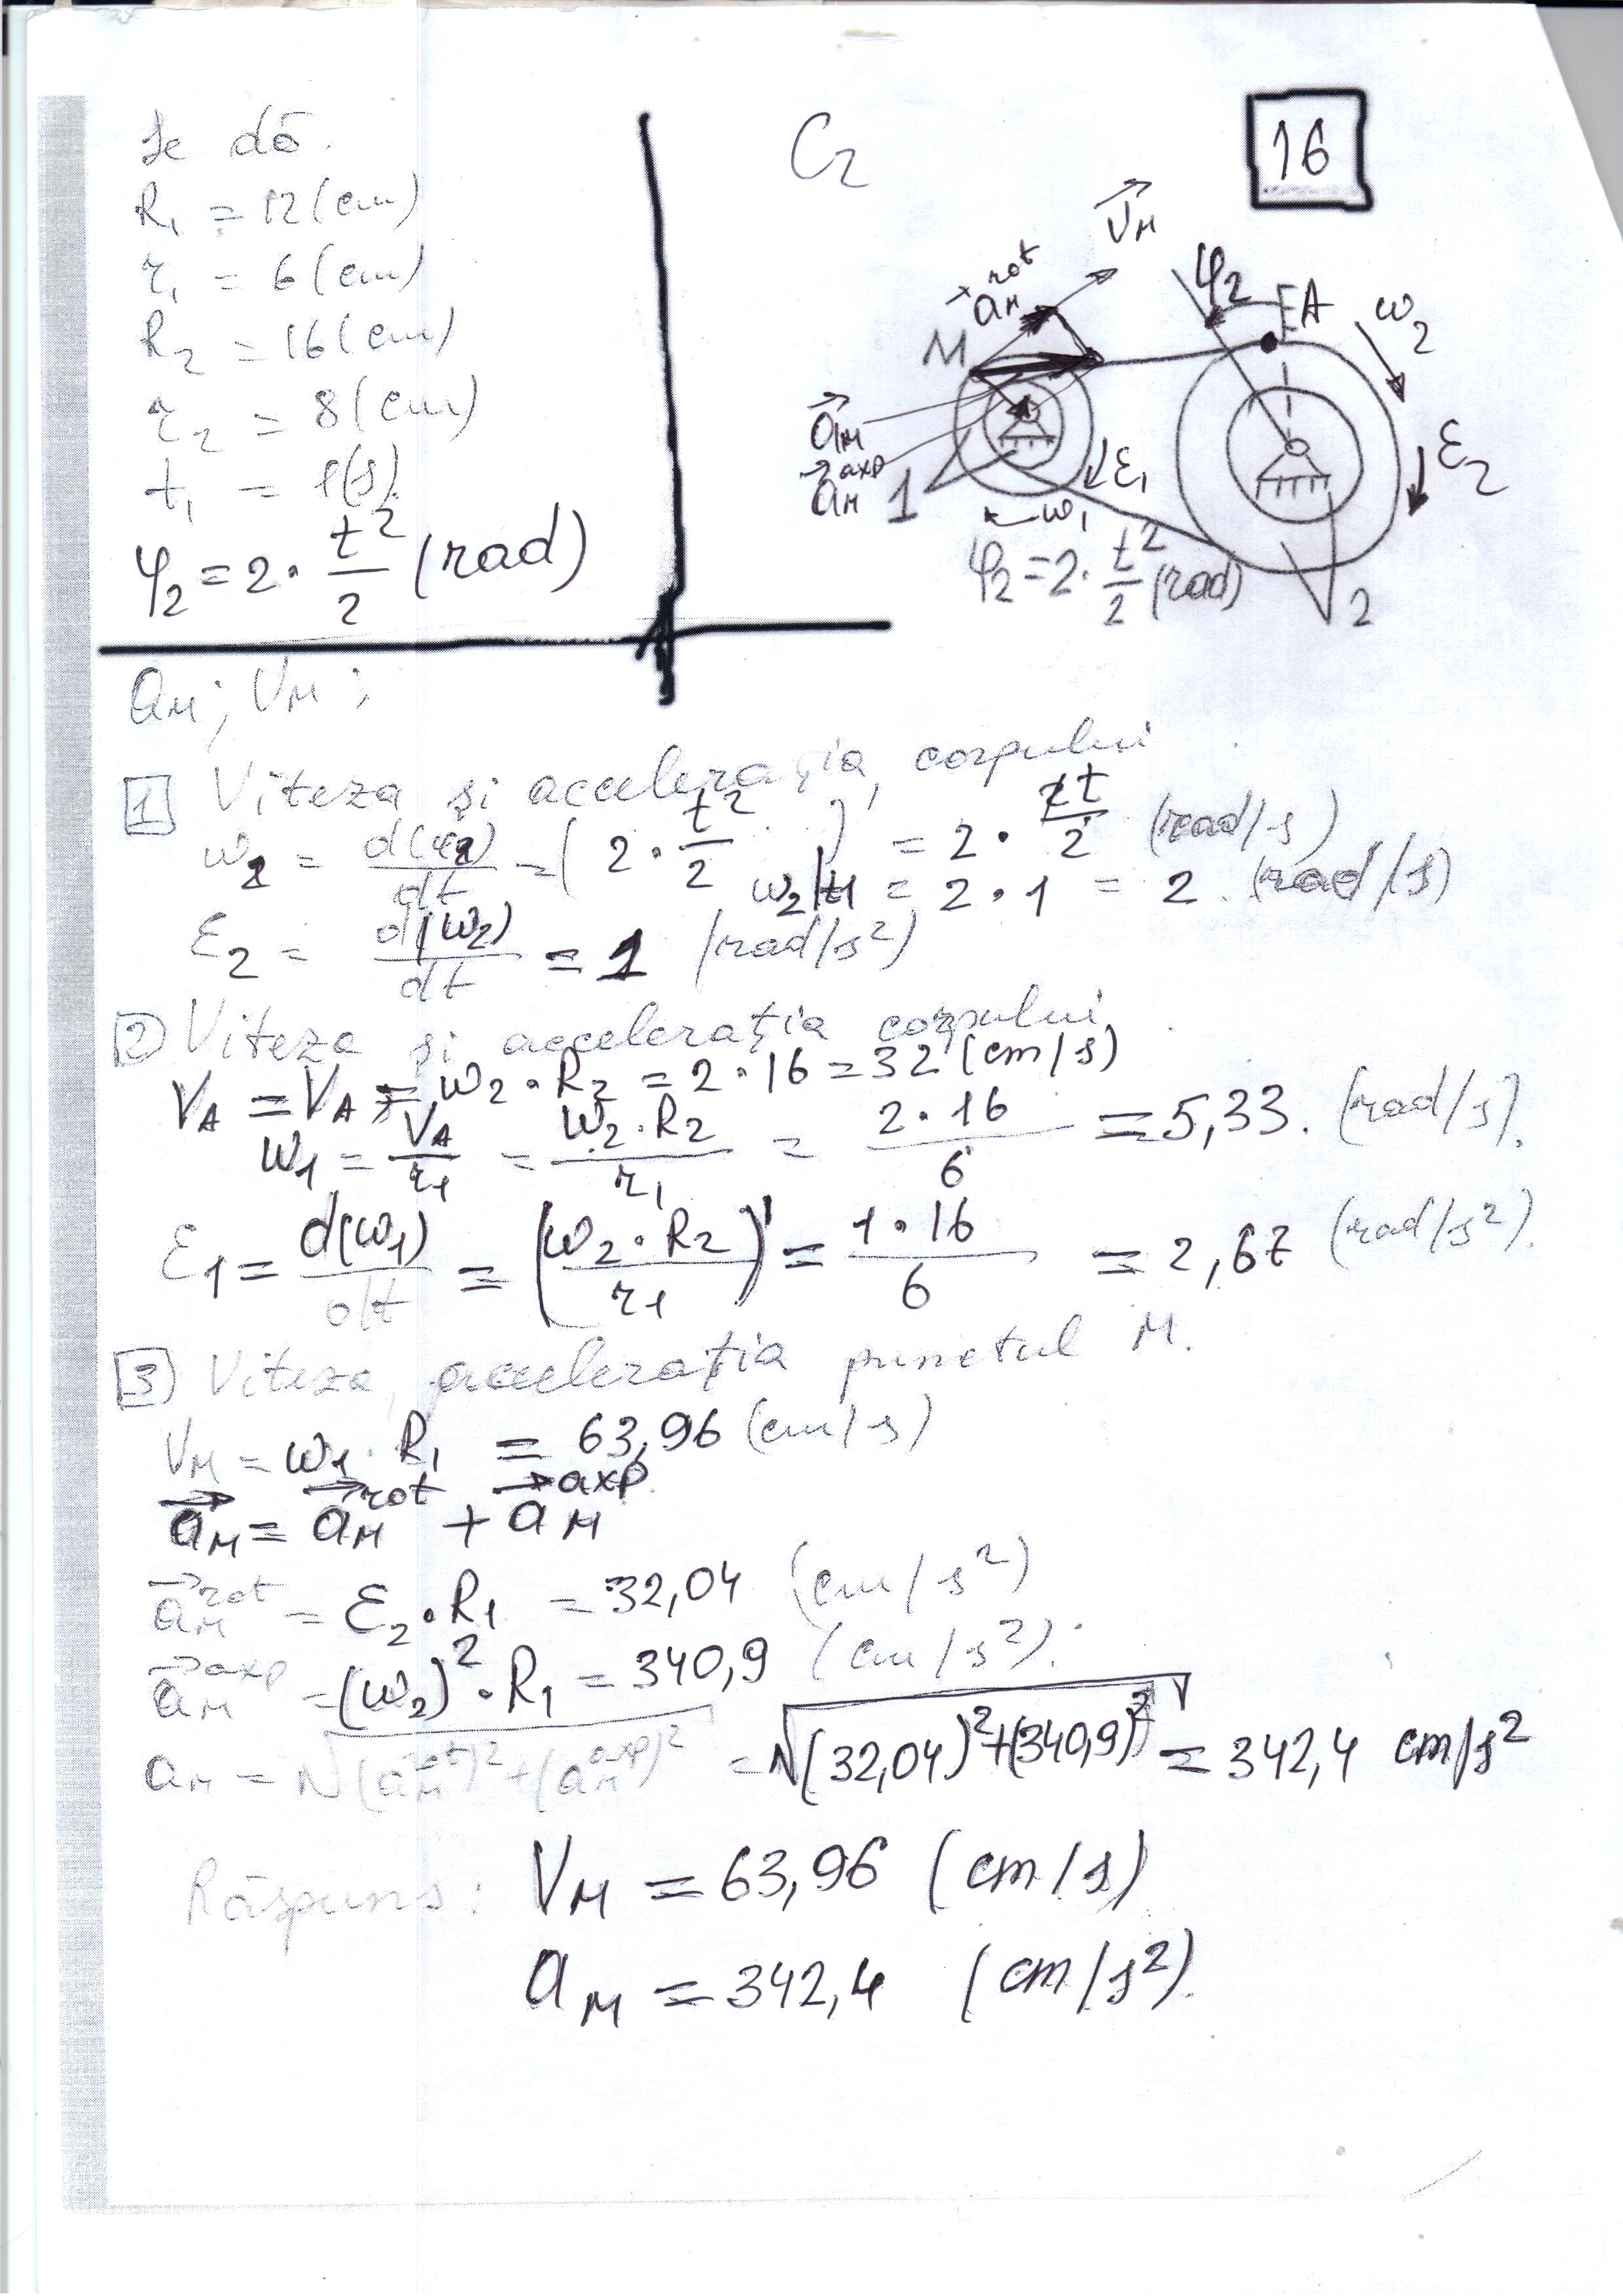 Se dă.
R₁ = 12 (cm)
r₁ = 6 (cm)
R₂ = 16 (cm)
r₂ = 8 (cm)
t₁ = 1(s).
φ₂ = 2 · t²/2 (rad)
aM ; VM ;
C2
16
V⃗M
a⃗M rot
φ₂
A
ω₂
M
a⃗M
a⃗M axp
1
ε₁
ω₁
ε₂
φ₂ = 2 · t²/2 (rad)
2
1 Viteza și accelerația corpului
ω₂ = d(φ₂)/dt = ( 2 · t²/2 )' = 2 · 2t/2 (rad/s)
ω₂|t1 = 2 · 1 = 2 (rad/s)
ε₂ = d(ω₂)/dt = 1 (rad/s²)
2 Viteza și accelerația corpului
VA = VA = ω₂ · R₂ = 2 · 16 = 32 (cm/s)
ω1 = VA/r1 = ω₂ · R₂/r₁ = 2 · 16/6 = 5,33. (rad/s).
ε1 = d(ω1)/dt = (ω₂ · R₂/r1)' = 1 · 16/6 = 2,67 (rad/s²).
3 Viteza, accelerația punctul M.
VM = ω1 · R₁ = 63,96 (cm/s)
a⃗M = a⃗M rot + a⃗M axp
a⃗M rot = ε₂ · R₁ = 32,04 (cm/s²)
a⃗M axp = (ω₂)² · R₁ = 340,9 (cm/s²).
aM = √(aM rot)² + (aM axp)² = √(32,04)² + (340,9)² = 342,4 cm/s²
Răspuns: VM = 63,96 (cm/s)
aM = 342,4 (cm/s²).